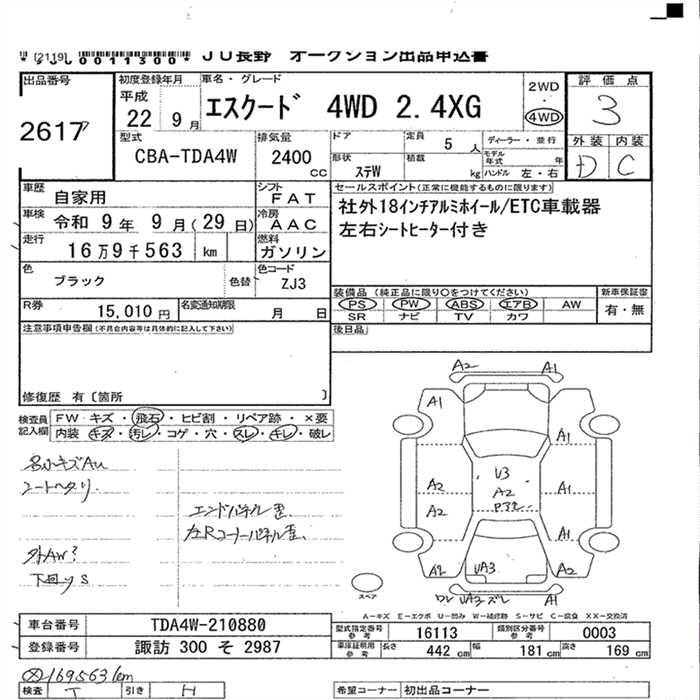 * [2119] *0011300* JU長野 オークション出品申込書
出品番号
2617
初度登録年月
平成
22 9月
車名・グレード
エスクード 4WD 2.4XG
2WD
・
4WD
評価点
3
外装 内装
D C
型式
CBA-TDA4W
排気量
2400
CC
ドア
形状
ステW
定員
5 人
積載
kg
ディーラー・並行
モデル年式 年
ハンドル 左・右
車歴
自家用
シフト
FAT
車検 令和 9年 9月(29日)
冷房
AAC
走行 16万9千563 km
燃料
ガソリン
色
ブラック
色替
色コード
ZJ3
R券 15,010円
名変通知期限
月 日
セールスポイント(正常に機能するものに限ります)
社外18インチアルミホイール/ETC車載器
左右シートヒーター付き
装備品(純正品に限り○をつけてください)
PS PW ABS エアB AW
SR ナビ TV カワ
新車保証書
有・無
後日品
注意事項申告欄(不具合内容等は具体的に記入して下さい)
修復歴 有〔箇所 〕
検査員記入欄
FW キズ・飛石・ヒビ割・リペア跡・×要
内装 キズ・汚レ・コゲ・穴・スレ・キレ・破レ
シートヘタリ
エンドパネル歪
左Rコーナーパネル歪
外AW?
下回りS
A2 A1
A1 A1
A1
A2 U3 A1
A2 A2
A1
A2 UA3 A2
UA3 ズレ A1
スペア
A-キズ E-エクボ U-凹み W-補修跡 S-サビ C-腐食 XX-交換済
車台番号 TDA4W-210880
登録番号 諏訪 300 そ 2987
型式指定番号
参考
16113
類別区分番号
参考
0003
車庫証明用
参考
長さ 442 cm 幅 181 cm 高さ 169 cm
169563km
検査 T 引き H
希望コーナー 初出品コーナー